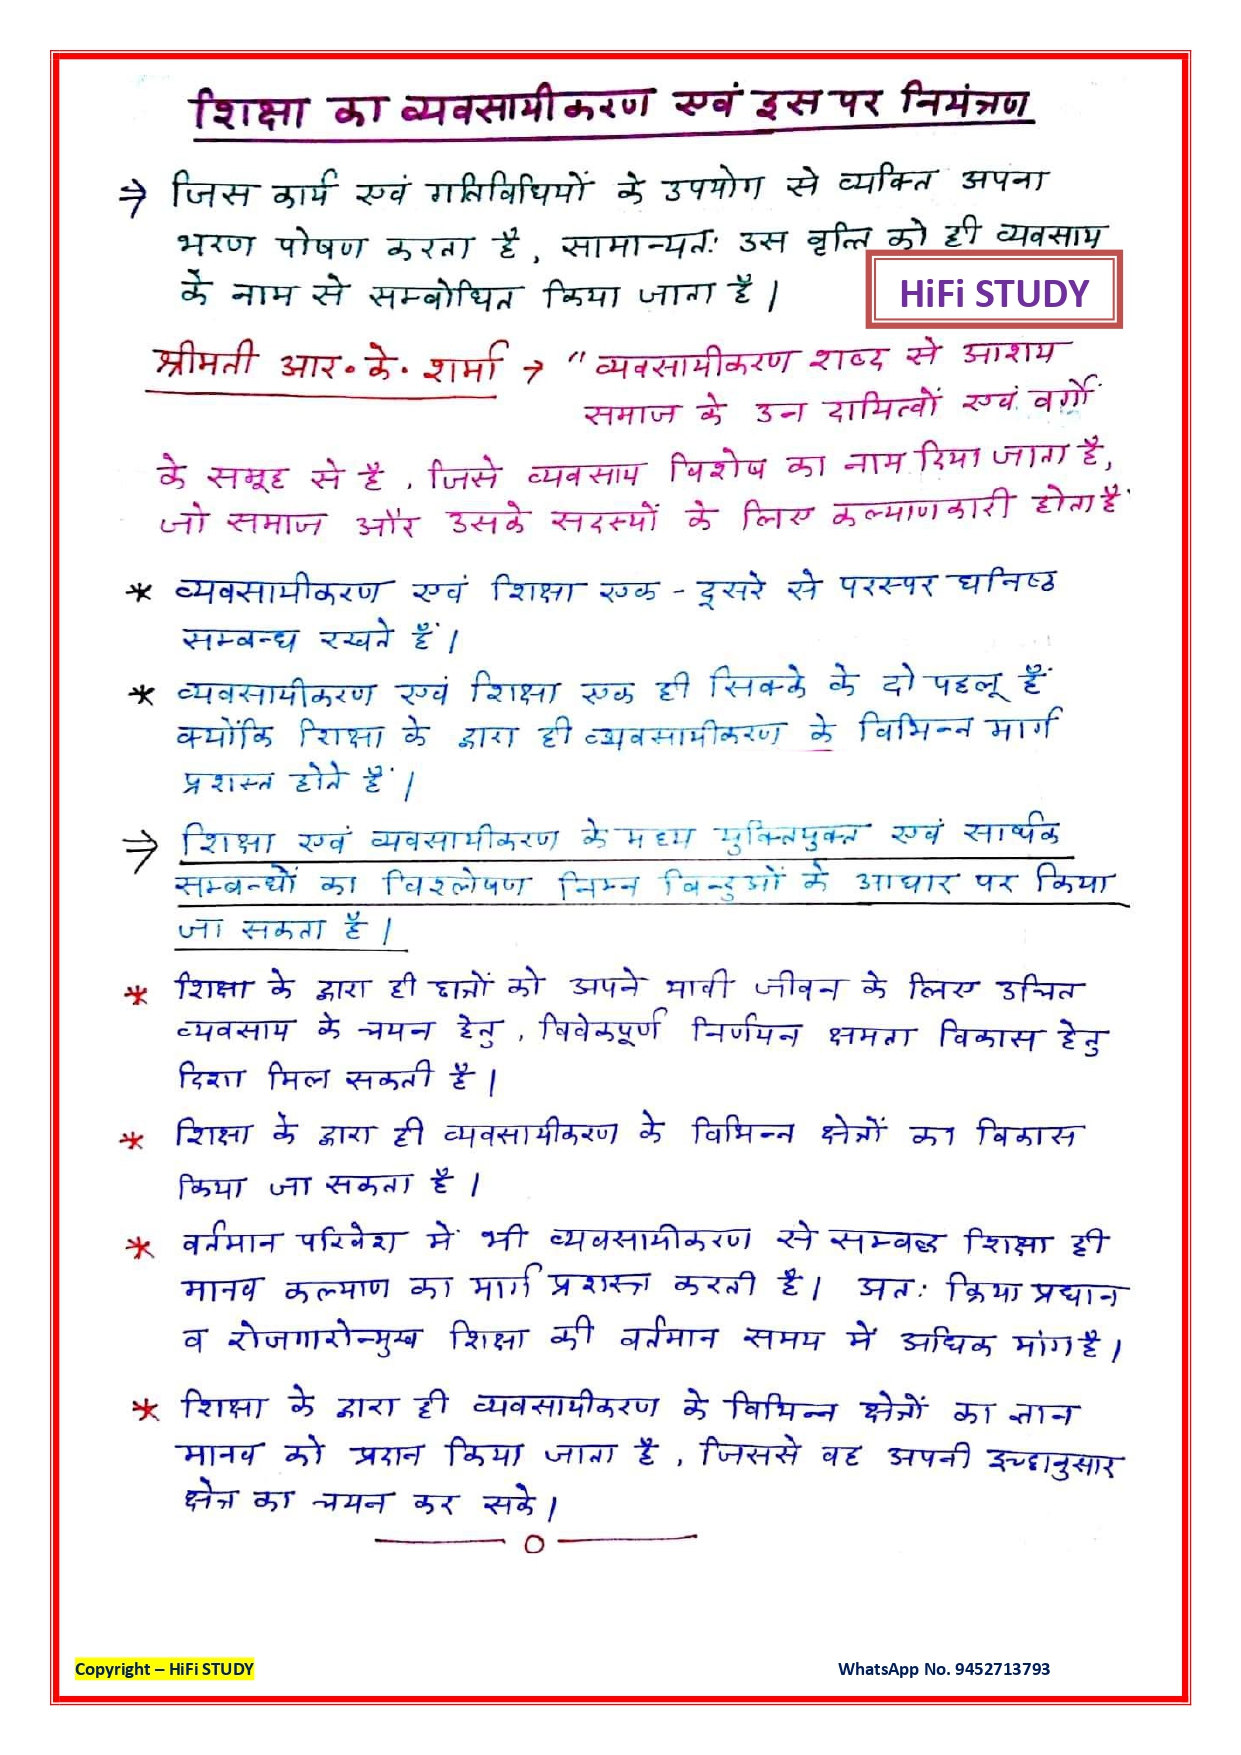 शिक्षा का व्यवसायीकरण एवं इस पर नियंत्रण
⇒ जिस कार्य एवं गतिविधियों के उपयोग से व्यक्ति अपना
भरण पोषण करता है, सामान्यतः उस वृत्ति को ही व्यवसाय
के नाम से सम्बोधित किया जाता है।
HiFi STUDY
श्रीमती आर. के. शर्मा → "व्यवसायीकरण शब्द से आशय
समाज के उन दायित्वों एवं वर्गों
के समूह से है, जिसे व्यवसाय विशेष का नाम दिया जाता है,
जो समाज और उसके सदस्यों के लिए कल्याणकारी होता है
* व्यवसायीकरण एवं शिक्षा एक - दूसरे से परस्पर घनिष्ठ
सम्बन्ध रखते हैं।
* व्यवसायीकरण एवं शिक्षा एक ही सिक्के के दो पहलू हैं
क्योंकि शिक्षा के द्वारा ही व्यवसायीकरण के विभिन्न मार्ग
प्रशस्त होते हैं।
⇒ शिक्षा एवं व्यवसायीकरण के मध्य युक्तियुक्त एवं सार्थक
सम्बन्धों का विश्लेषण निम्न बिन्दुओं के आधार पर किया
जा सकता है।
* शिक्षा के द्वारा ही छात्रों को अपने भावी जीवन के लिए उचित
व्यवसाय के चयन हेतु, विवेकपूर्ण निर्णयन क्षमता विकास हेतु
दिशा मिल सकती है।
* शिक्षा के द्वारा ही व्यवसायीकरण के विभिन्न क्षेत्रों का विकास
किया जा सकता है।
* वर्तमान परिवेश में भी व्यवसायीकरण से सम्बद्ध शिक्षा ही
मानव कल्याण का मार्ग प्रशस्त करती है। अतः क्रिया प्रधान
व रोजगारोन्मुख शिक्षा की वर्तमान समय में अधिक मांग है।
* शिक्षा के द्वारा ही व्यवसायीकरण के विभिन्न क्षेत्रों का ज्ञान
मानव को प्रदान किया जाता है, जिससे वह अपनी इच्छानुसार
क्षेत्र का चयन कर सके।
Copyright – HiFi STUDY
WhatsApp No. 9452713793